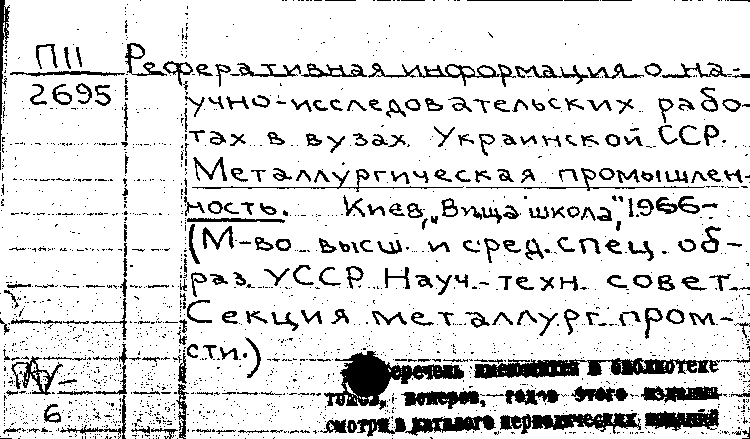 П11
2695
Реферативная информация о на-
учно-исследовательских рабо-
тах в вузах Украинской ССР.
Металлургическая промышлен-
ность. Киев, „Вища школа", 1966-
(М-во высш. и сред. спец. об-
раз. УССР Науч.-техн. совет
Секция металлург. пром-
сти.)
6
Перечень имеющихся в библиотеке
томов, номеров, годов этого издания
смотри в каталоге периодических изданий